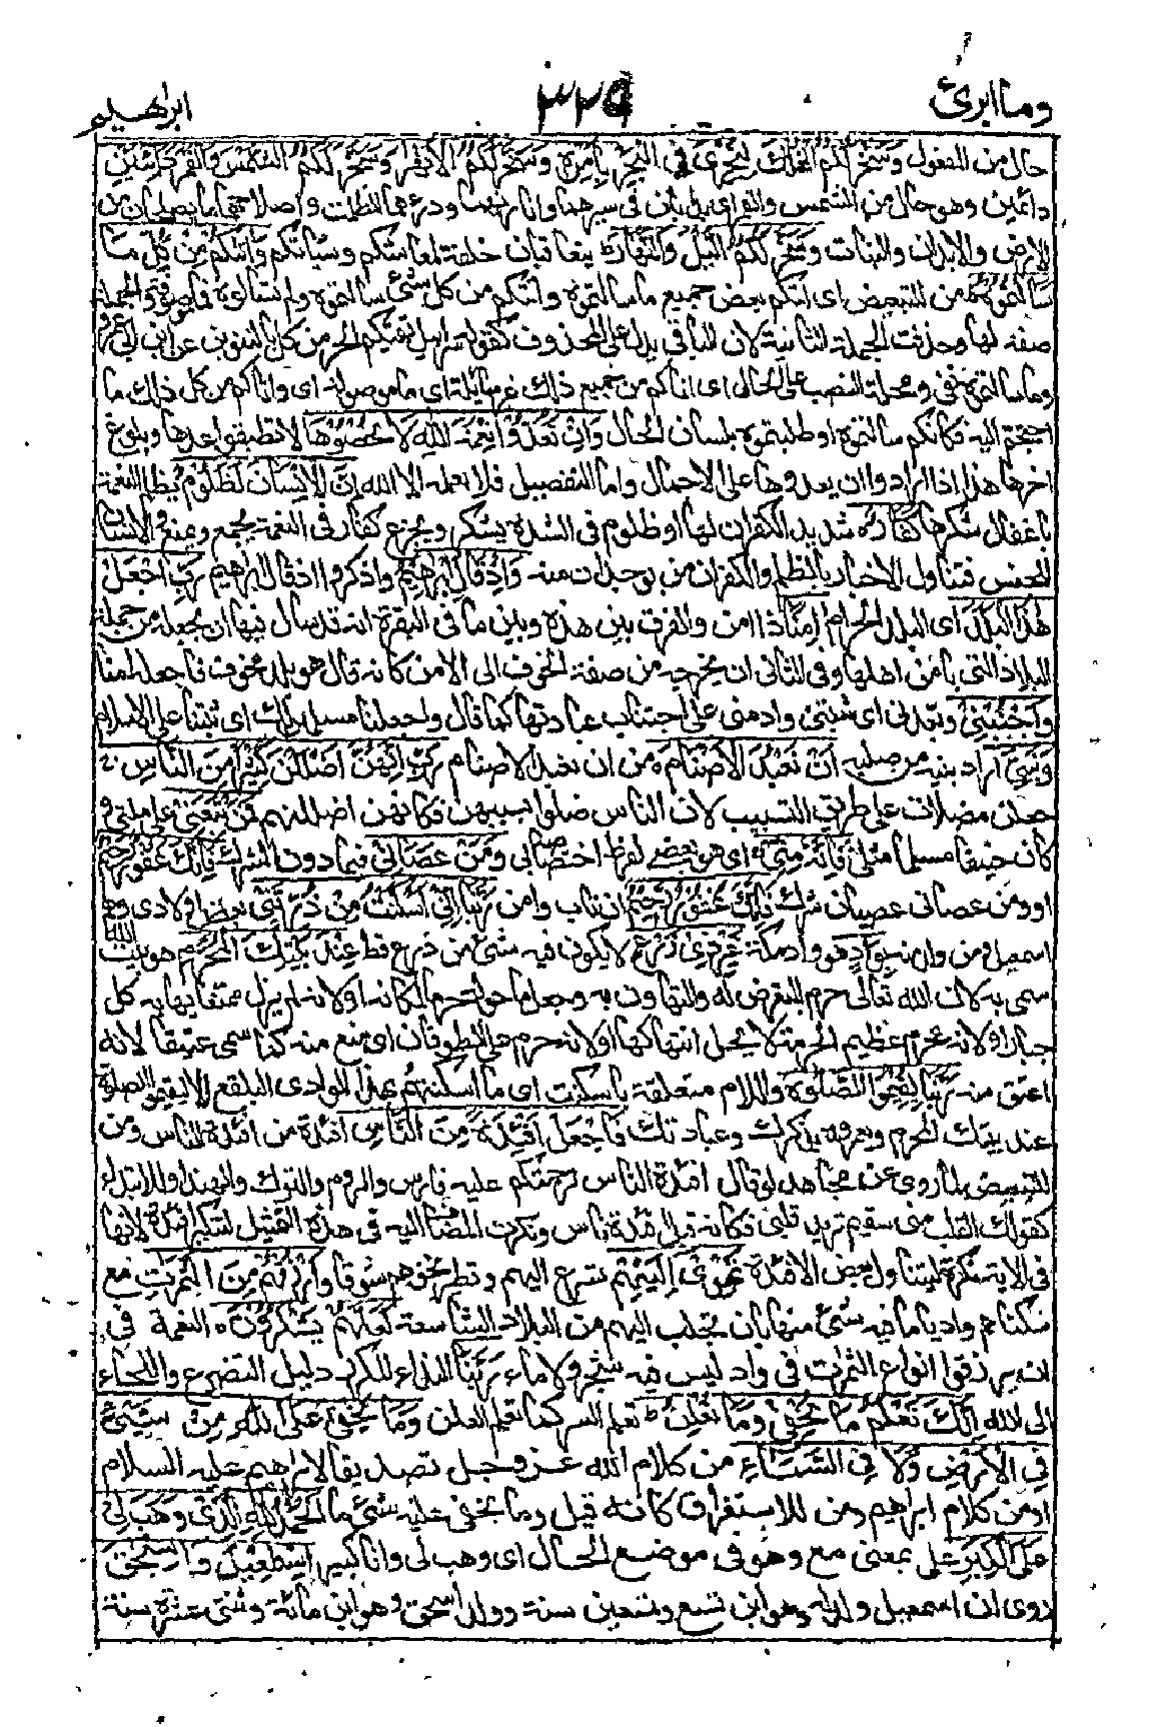 وما ابرئ ٣٢٩ ابراهيم
حال من المفعول وَسَخَّرَ لَكُمُ الْفُلْكَ لِتَجْرِيَ فِي الْبَحْرِ بِأَمْرِهِ وَسَخَّرَ لَكُمُ الْأَنْهَارَ وَسَخَّرَ لَكُمُ الشَّمْسَ وَالْقَمَرَ دَائِبَيْنِ
دائمين وهو حال من الشمس والقمر اى يدأبان فى سيرهما وانارتهما ودرءهما الظلمات واصلاحهما ما يصلحان من
الارض والابدان والنبات وَسَخَّرَ لَكُمُ الَّيْلَ وَالنَّهَارَ يتعاقبان خلفة لمعاشكم وسباتكم وَآتٰكُمْ مِنْ كُلِّ مَا
سَأَلْتُمُوهُ من للتبعيض اى آتكم بعض جميع ما سألتموه وآتكم من كل شئ سألتموه وما لم تسألوه فما موصوفة والجملة
صفة لها وحذفت الجملة الثانية لان الباقى يدل على المحذوف كقوله سرابيل تقيكم الحر من كل بالتنوين عن ابى عمرو
وما سألتموه نفى ومحله النصب على الحال اى اتاكم من جميع ذلك غير سائليه او ما موصولة اى واتاكم من كل ذلك ما
احتجتم اليه فكانكم سألتموه او طلبتموه بلسان الحال وَإِنْ تَعُدُّوا نِعْمَةَ اللهِ لَا تُحْصُوهَا لا تطيقوا عدها وبلوغ
اخرها هذا اذا ارادوا ان يعدوها على الاجمال واما التفصيل فلا يعلمه الا الله إِنَّ الْإِنْسَانَ لَظَلُومٌ يظلم النعمة
باغفال شكرها كَفَّارٌ شديد الكفران لها او ظلوم فى الشدة يشكو ويجزع كفار فى النعمة يجمع ويمنع والانسان
للجنس فتناول الاخبار بالظلم والكفران من يوجدان منه وَإِذْ قَالَ إِبْرٰهِيمُ واذكر اذ قال ابراهيم رَبِّ اجْعَلْ
هٰذَا الْبَلَدَ اى البلد الحرام اٰمِنًا ذا امن والفرق بين هذه وبين ما فى البقرة انه قد سأل فيها ان يجعله من جملة
البلاد التى يأمن اهلها وفى الثانى ان يخرجه من صفة الخوف الى الامن كانه قال هو بلد مخوف فاجعله امنا
وَاجْنُبْنِي وبعدنى اى ثبتنى وادمنى على اجتناب عبادتها كما قال واجعلنا مسلمين لك اى ثبتنا على الاسلام
وَبَنِيَّ اراد بنيه من صلبه أَنْ نَعْبُدَ الْأَصْنَامَ من ان نعبد الاصنام رَبِّ إِنَّهُنَّ أَضْلَلْنَ كَثِيرًا مِنَ النَّاسِ
جعلن مضلات على طريق التسبيب لان الناس ضلوا بسببهن فكانهن اضللنهم فَمَنْ تَبِعَنِي على ملتى و
كان حنيفا مسلما مثلى فَإِنَّهُ مِنِّي اى هو بعضى لفرط اختصاصه بى وَمَنْ عَصَانِي فيما دون الشرك فَإِنَّكَ غَفُورٌ رَحِيمٌ
او ومن عصانى عصيان شرك فَإِنَّكَ غَفُورٌ رَحِيمٌ ان تاب وامن رَبَّنَا إِنِّي أَسْكَنْتُ مِنْ ذُرِّيَّتِي بعض اولادى وهم
اسمعيل ومن ولد منه بِوَادٍ هو وادى مكة غَيْرِ ذِي زَرْعٍ لا يكون فيه شئ من زرع قط عِنْدَ بَيْتِكَ الْمُحَرَّمِ هو بيت الله
سمى به لان الله تعالى حرم التعرض له والتهاون به وجعل ما حوله حرما لمكانه او لانه لم يزل ممتنعا يهابه كل
جبار او لانه محرم عظيم الحرمة لا يحل انتهاكها او لانه حرم على الطوفان اى منع منه كما سمى عتيقا لانه
اعتق منه رَبَّنَا لِيُقِيمُوا الصَّلٰوةَ واللام متعلقة باسكنت اى ما اسكنتهم بهذا الوادى البلقع الا ليقيموا الصلوة
عند بيتك المحرم ويعمروه بذكرك وعبادتك فَاجْعَلْ أَفْئِدَةً مِنَ النَّاسِ افئدة من افئدة الناس ومن
للتبعيض لما روى عن مجاهد لو قال افئدة الناس لزحمتكم عليه فارس والروم والترك والهند او للابتداء
كقولك القلب منى سقيم تريد قلبى فكانه قيل افئدة ناس ونكرت المضاف اليه فى هذه التمثيل لتنكير افئدة لانها
فى الاية نكرة ليتناول بعض الافئدة تَهْوِي إِلَيْهِمْ تسرع اليهم وتطير نحوهم شوقا وَارْزُقْهُمْ مِنَ الثَّمَرٰتِ مع
سكناهم واديا ما فيه شئ منها بان تجلب اليهم من البلاد الشاسعة لَعَلَّهُمْ يَشْكُرُونَ النعمة فى
ان يرزقوا انواع الثمرات فى واد ليس فيه شجر ولا ماء رَبَّنَا النداء المكرر دليل التضرع واللجاء
الى الله إِنَّكَ تَعْلَمُ مَا نُخْفِي وَمَا نُعْلِنُ تعلم السر كما تعلم العلن وَمَا يَخْفٰى عَلَى اللهِ مِنْ شَيْئٍ
فِي الْأَرْضِ وَلَا فِي السَّمَاءِ من كلام الله عز وجل تصديقا لابراهيم عليه السلام
او من كلام ابراهيم ومن للاستغراق كانه قيل وما يخفى عليه شئ ما الْحَمْدُ لِلهِ الَّذِي وَهَبَ لِي
عَلَى الْكِبَرِ على بمعنى مع وهو فى موضع الحال اى وهب لى وانا كبير إِسْمٰعِيلَ وَإِسْحٰقَ
روى ان اسمعيل ولد له وهو ابن تسع وتسعين سنة وولد اسحق وهو ابن مائة وثنتى عشرة سنة